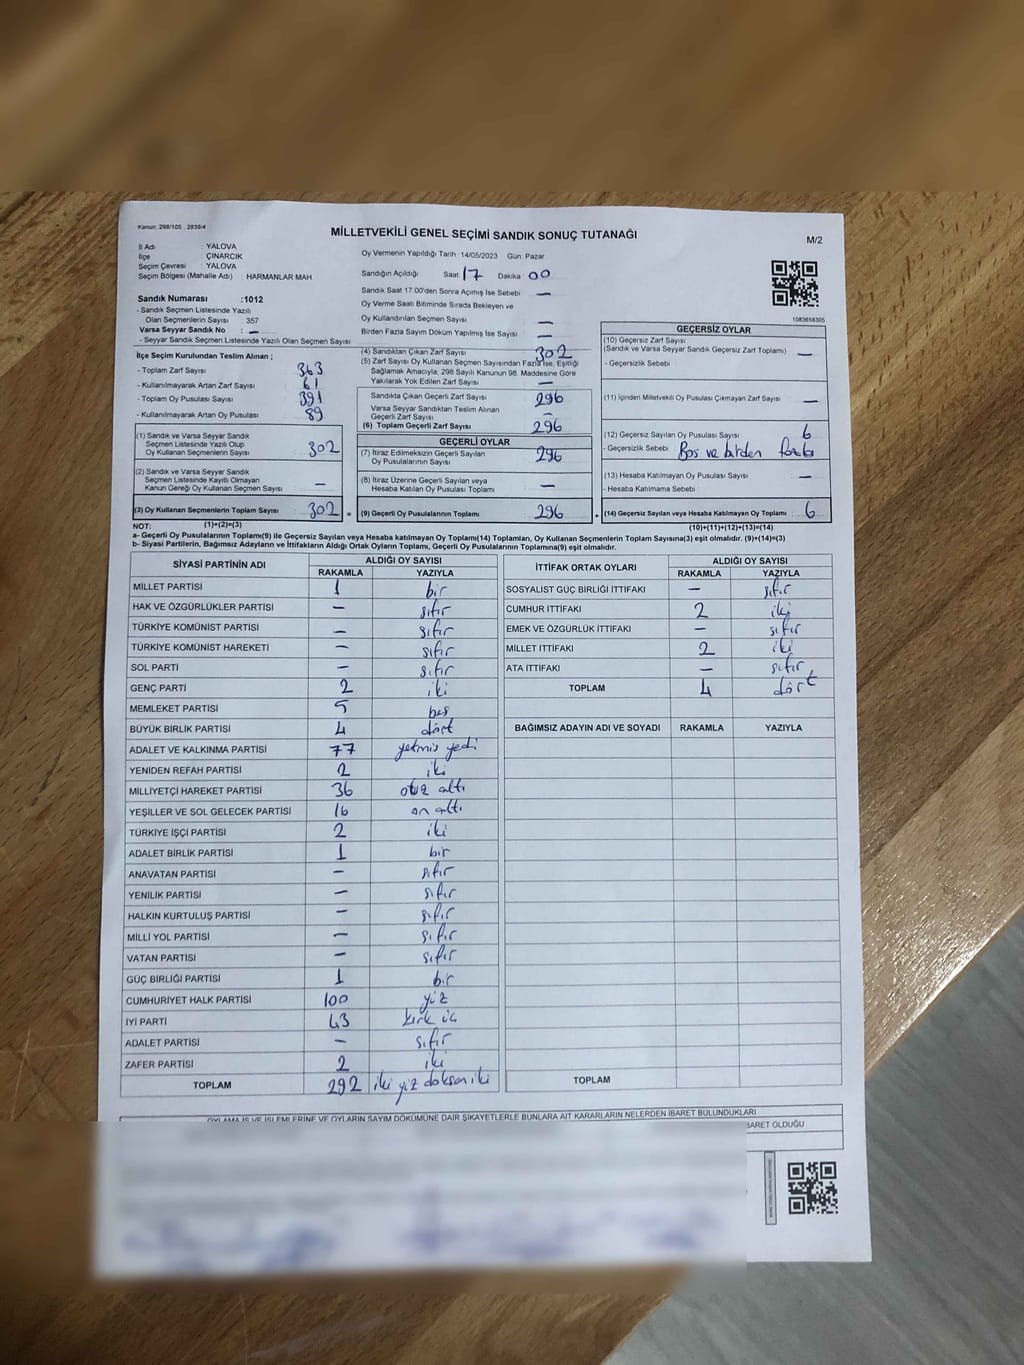 Kanun: 298/105 , 2839/4
MİLLETVEKİLİ GENEL SEÇİMİ SANDIK SONUÇ TUTANAĞI
M/2
İl Adı : YALOVA
İlçe : ÇINARCIK
Seçim Çevresi : YALOVA
Seçim Bölgesi (Mahalle Adı) : HARMANLAR MAH
Sandık Numarası :1012
- Sandık Seçmen Listesinde Yazılı
Olan Seçmenlerin Sayısı : 357
Varsa Seyyar Sandık No : —
- Seyyar Sandık Seçmen Listesinde Yazılı Olan Seçmen Sayısı
Oy Vermenin Yapıldığı Tarih : 14/05/2023 Gün: Pazar
Sandığın Açıldığı Saat 17 Dakika 00
Sandık Saat 17:00'den Sonra Açılmış İse Sebebi —
Oy Verme Saati Bitiminde Sırada Bekleyen ve
Oy Kullandırılan Seçmen Sayısı —
Birden Fazla Sayım Döküm Yapılmış İse Sayısı —
1083658305
İlçe Seçim Kurulundan Teslim Alınan ;
- Toplam Zarf Sayısı 363
- Kullanılmayarak Artan Zarf Sayısı 61
- Toplam Oy Pusulası Sayısı 391
- Kullanılmayarak Artan Oy Pusulası 89
(1) Sandık ve Varsa Seyyar Sandık
Seçmen Listesinde Yazılı Olup
Oy Kullanan Seçmenlerin Sayısı 302
(2) Sandık ve Varsa Seyyar Sandık
Seçmen Listesinde Kayıtlı Olmayan
Kanun Gereği Oy Kullanan Seçmen Sayısı —
(3) Oy Kullanan Seçmenlerin Toplam Sayısı 302
(4) Sandıktan Çıkan Zarf Sayısı 302
(5) Zarf Sayısı Oy Kullanan Seçmen Sayısından Fazla İse, Eşitliği
Sağlamak Amacıyla, 298 Sayılı Kanunun 98. Maddesine Göre
Yakılarak Yok Edilen Zarf Sayısı —
Sandıkta Çıkan Geçerli Zarf Sayısı 296
Varsa Seyyar Sandıktan Teslim Alınan
Geçerli Zarf Sayısı —
(6) Toplam Geçerli Zarf Sayısı 296
GEÇERLİ OYLAR
(7) İtiraz Edilmeksizin Geçerli Sayılan
Oy Pusulalarının Sayısı 296
(8) İtiraz Üzerine Geçerli Sayılan veya
Hesaba Katılan Oy Pusulası Toplamı —
= (9) Geçerli Oy Pusulalarının Toplamı 296
GEÇERSİZ OYLAR
(10) Geçersiz Zarf Sayısı
(Sandık ve Varsa Seyyar Sandık Geçersiz Zarf Toplamı) —
- Geçersizlik Sebebi
(11) İçinden Milletvekili Oy Pusulası Çıkmayan Zarf Sayısı —
(12) Geçersiz Sayılan Oy Pusulası Sayısı 6
- Geçersizlik Sebebi Boş ve birden fazla
(13) Hesaba Katılmayan Oy Pusulası Sayısı —
- Hesaba Katılmama Sebebi
+ (14) Geçersiz Sayılan veya Hesaba Katılmayan Oy Toplamı 6
NOT: (1)+(2)=(3)
(10)+(11)+(12)+(13)=(14)
a- Geçerli Oy Pusulasının Toplamı(9) ile Geçersiz Sayılan veya Hesaba katılmayan Oy Toplamı(14) Toplamları, Oy Kullanan Seçmenlerin Toplam Sayısına(3) eşit olmalıdır. (9)+(14)=(3)
b- Siyasi Partilerin, Bağımsız Adayların ve İttifakların Aldığı Ortak Oyların Toplamı, Geçerli Oy Pusulalarının Toplamına(9) eşit olmalıdır.
SİYASİ PARTİNİN ADI ALDIĞI OY SAYISI
RAKAMLA YAZIYLA
MİLLET PARTİSİ 1 bir
HAK VE ÖZGÜRLÜKLER PARTİSİ — sıfır
TÜRKİYE KOMÜNİST PARTİSİ — sıfır
TÜRKİYE KOMÜNİST HAREKETİ — sıfır
SOL PARTİ — sıfır
GENÇ PARTİ 2 iki
MEMLEKET PARTİSİ 5 beş
BÜYÜK BİRLİK PARTİSİ 4 dört
ADALET VE KALKINMA PARTİSİ 77 yetmiş yedi
YENİDEN REFAH PARTİSİ 2 iki
MİLLİYETÇİ HAREKET PARTİSİ 36 otuz altı
YEŞİLLER VE SOL GELECEK PARTİSİ 16 on altı
TÜRKİYE İŞÇİ PARTİSİ 2 iki
ADALET BİRLİK PARTİSİ 1 bir
ANAVATAN PARTİSİ — sıfır
YENİLİK PARTİSİ — sıfır
HALKIN KURTULUŞ PARTİSİ — sıfır
MİLLİ YOL PARTİSİ — sıfır
VATAN PARTİSİ — sıfır
GÜÇ BİRLİĞİ PARTİSİ 1 bir
CUMHURİYET HALK PARTİSİ 100 yüz
İYİ PARTİ 43 kırk üç
ADALET PARTİSİ — sıfır
ZAFER PARTİSİ 2 iki
TOPLAM 292 iki yüz doksan iki
İTTİFAK ORTAK OYLARI ALDIĞI OY SAYISI
RAKAMLA YAZIYLA
SOSYALIST GUÇ BİRLİĞI İTTİFAKI — sıfır
CUMHUR İTTİFAKI 2 iki
EMEK VE ÖZGÜRLÜK İTTİFAKI — sıfır
MİLLET İTTİFAKI 2 iki
ATA İTTİFAKI — sıfır
TOPLAM 4 dört
BAĞIMSIZ ADAYIN ADI VE SOYADI RAKAMLA YAZIYLA
TOPLAM
OYLAMA İŞ VE İŞLEMLERİNE VE OYLARIN SAYIM DÖKÜMÜNE DAİR ŞİKAYETLERLE BUNLARA AİT KARARLARIN NELERDEN İBARET BULUNDUKLARI
İBARET OLDUĞU